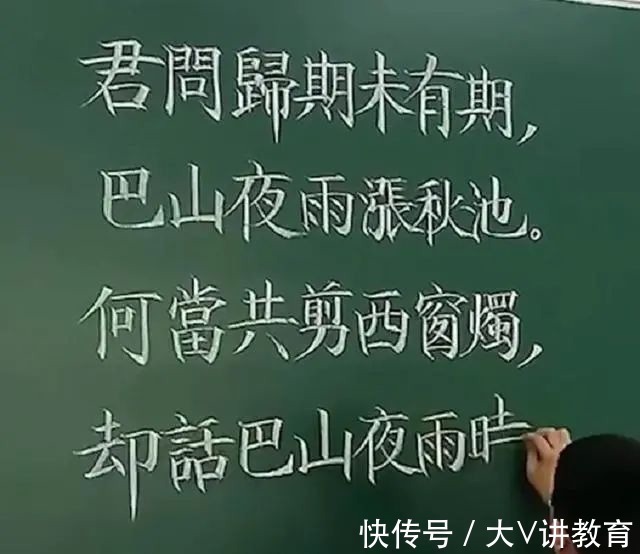 君問歸期未有期，
巴山夜雨漲秋池。
何當共剪西窗燭，
却話巴山夜雨
快传号 / 大V讲教育